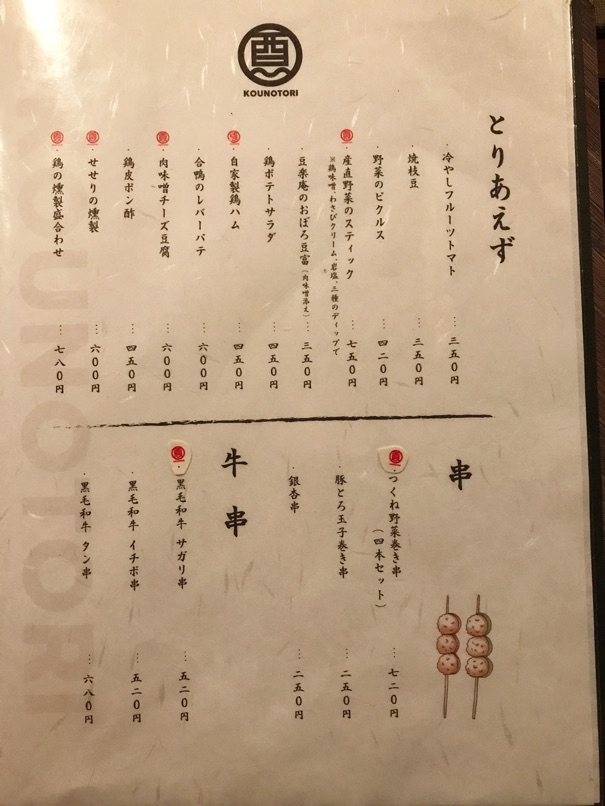 酉
KOUNOTORI
とりあえず
・冷やしフルーツトマト … 三五〇円
・焼枝豆 … 三五〇円
・野菜のピクルス … 四二〇円
・産直野菜のスティック … 七五〇円
※鶏味噌、わさびクリーム、岩塩、三種のディップで
・豆楽庵のおぼろ豆富（肉味噌添え） … 三五〇円
・鶏ポテトサラダ … 四五〇円
・自家製鶏ハム … 四五〇円
・合鴨のレバーパテ … 六〇〇円
・肉味噌チーズ豆腐 … 六〇〇円
・鶏皮ポン酢 … 四五〇円
・せせりの燻製 … 六〇〇円
・鶏の燻製盛合わせ … 七八〇円
串
・つくね野菜巻き串（四本セット） … 七二〇円
・豚とろ玉子巻き串 … 二五〇円
・銀杏串 … 二五〇円
牛串
・黒毛和牛 サガリ串 … 五二〇円
・黒毛和牛 イチボ串 … 五二〇円
・黒毛和牛 タン串 … 六八〇円
KOUNOTORI